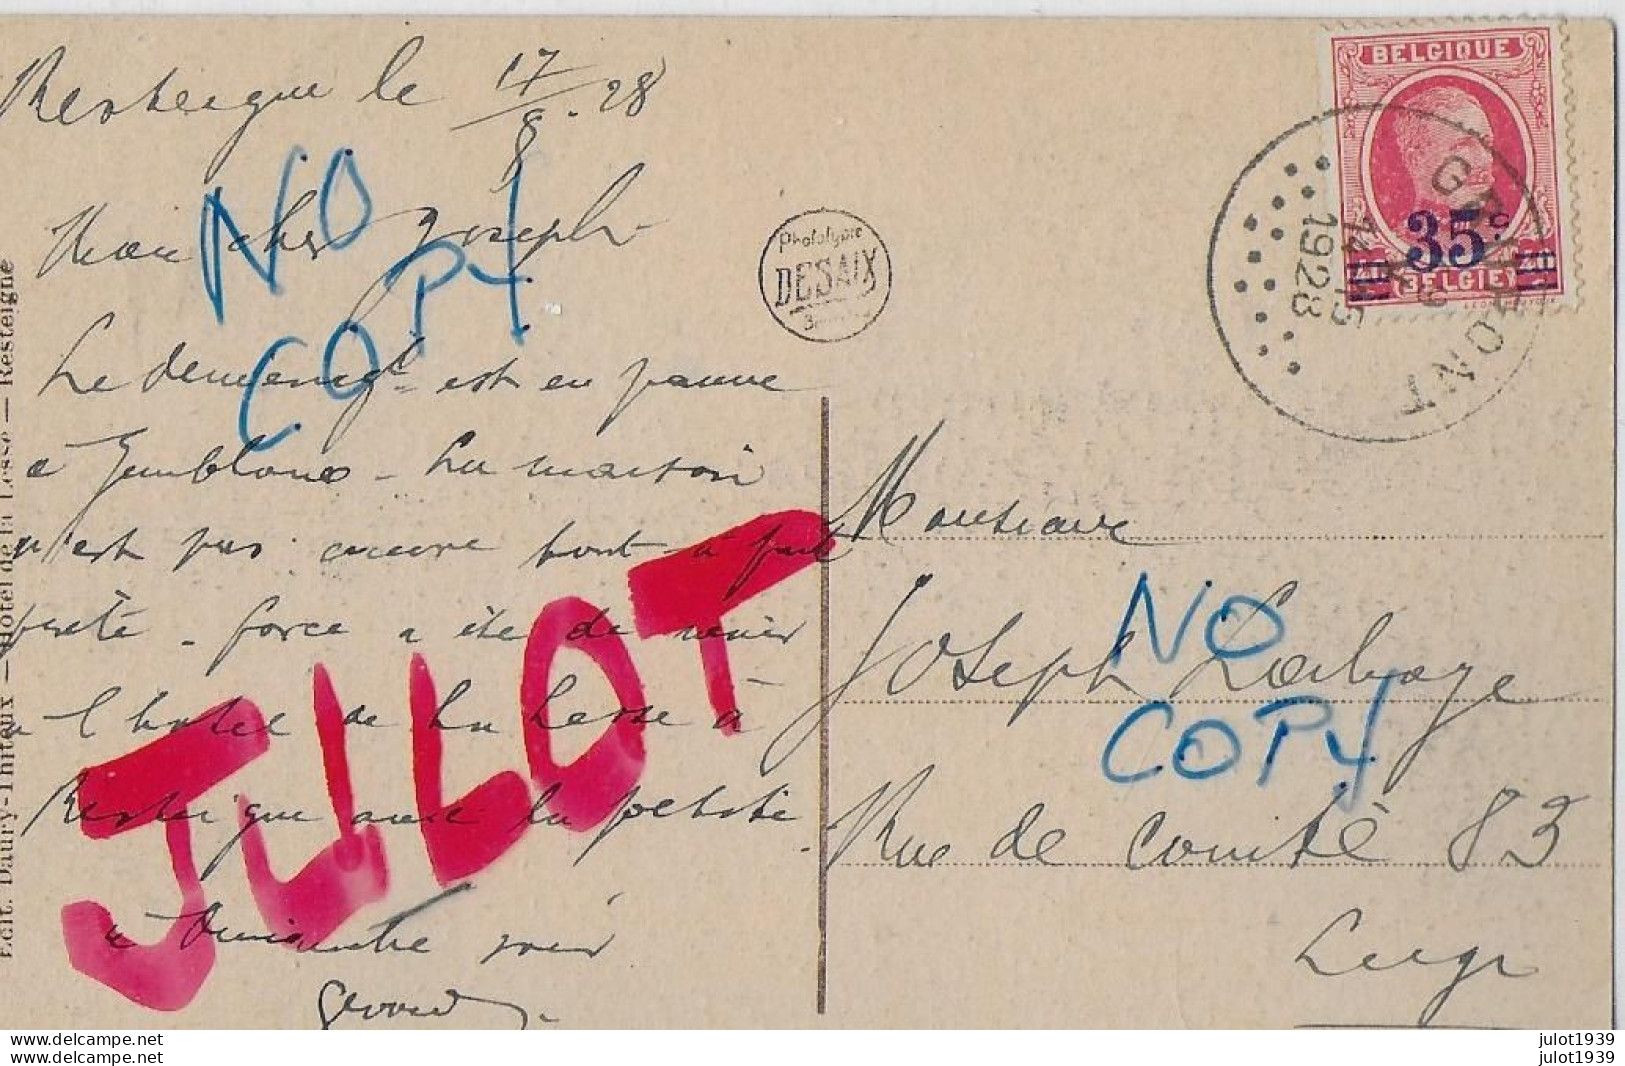 Resteigne le 17/8.28
Mon cher Joseph
Le déménagt est en panne
à Gembloux - La maison
n'est pas encore tout à fait
prête - force a été de venir
à l'hotel de la Lesse à
Resteigne avec la petite
à dimanche
NO
COPY
JULOT
Edit. Daury-Thiteux — Hôtel de la Lesse — Resteigne
Phototypie
DESAIX
BELGIQUE
35c
BELGIE
1928
Monsieur
Joseph Labaye
Rue de Comité 83
Liège
NO
COPY
julot1939
julot1939
julot1939
julot1939